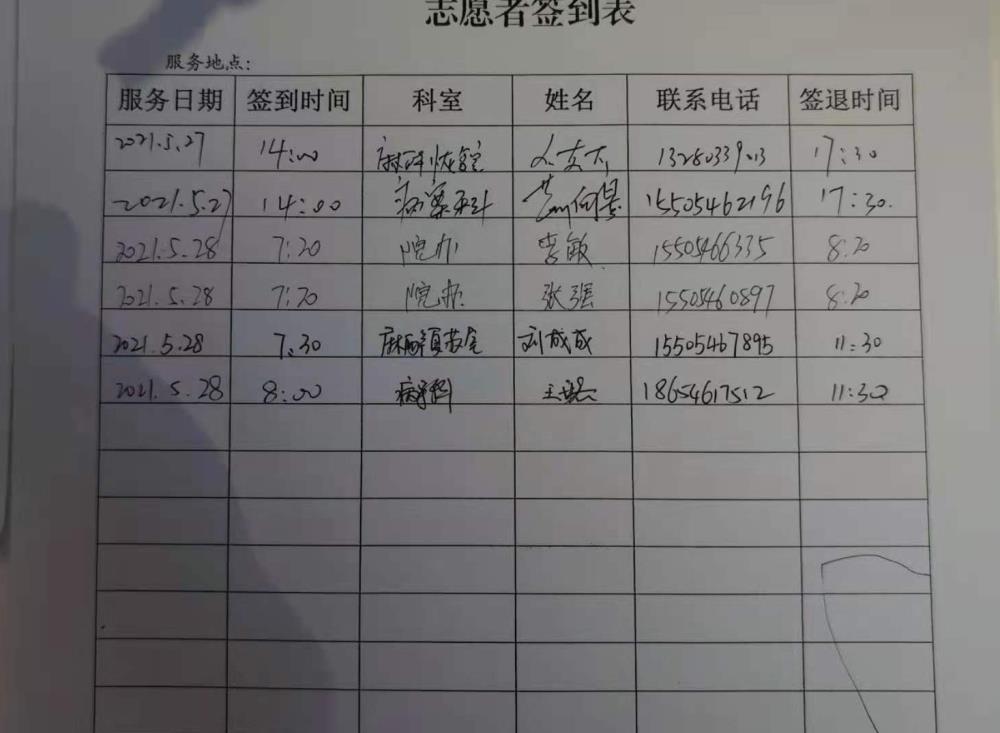 志愿者签到表
服务地点：
服务日期 签到时间 科室 姓名 联系电话 签退时间
2021.5.27 14:00 17:30
2021.5.27 14:00 病案科 15505462196 17:30.
2021.5.28 7:20 院办 李敏 15505466335 8:20
2021.5.28 7:20 院办 张强 15505460897 8:20
2021.5.28 7:30 刘成成 15505467895 11:30
2021.5.28 8:00 18654617512 11:30